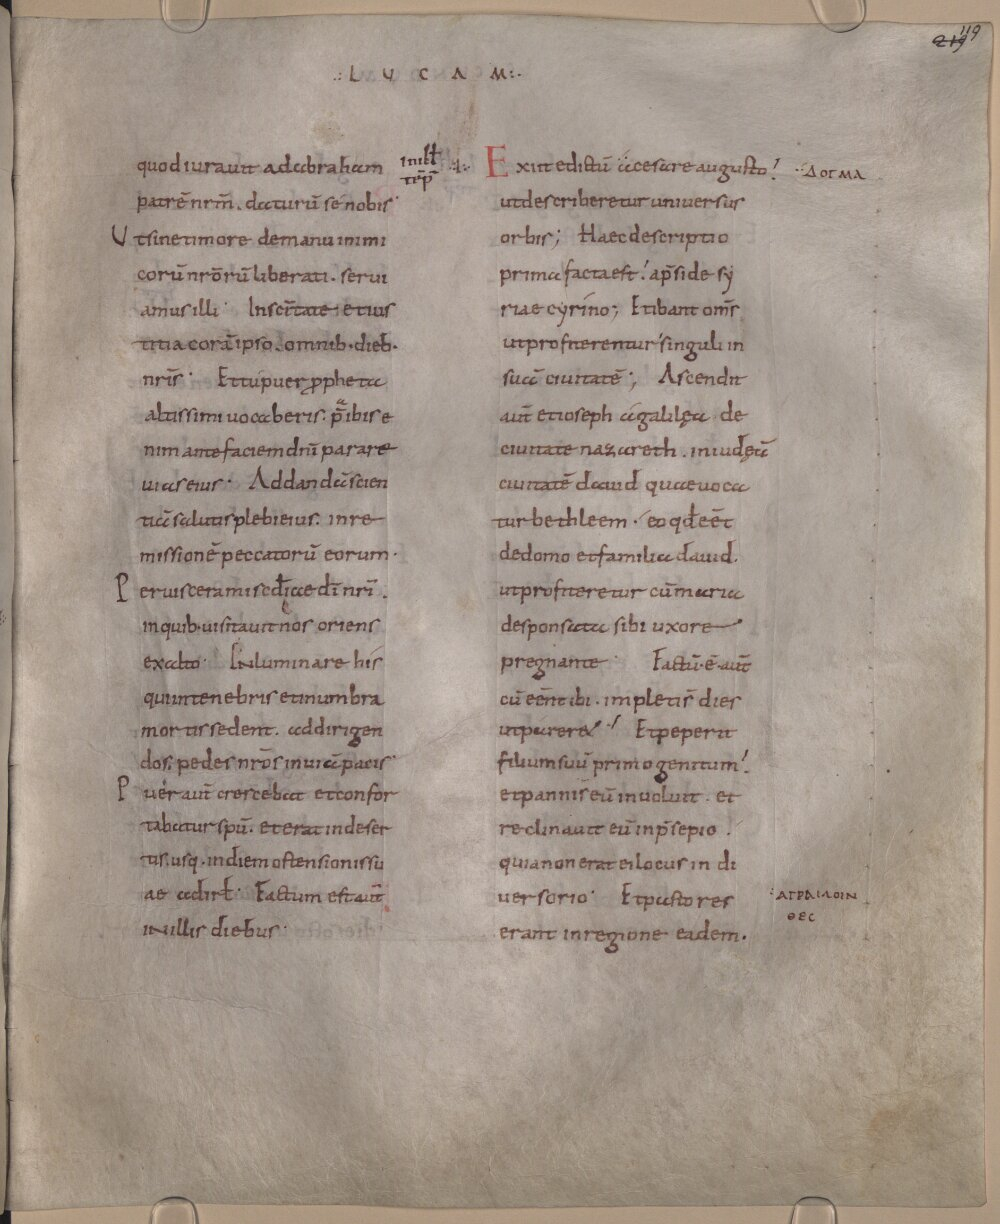 219 119
.:. L U C A M :.
quod iuravit ad abraham
patrē nrm̄. daturū se nobis
Ut sine timore de manu inimi
corū nrōrū liberati. servi
amus illi· In scītate et ius
titia corā ipso. omnib· dieb·
nrīs· Et tu puer ꝓpheta
altissimi vocaberis. p̄ibis e
nim ante faciem dnī parare
vias eius· Ad dandā scien
tiā salutis plebi eius. in re
missionē peccatorū eorum·
Per viscera misc̄diae dī nrī.
in quib· visitavit nos oriens
ex alto· Inluminare his
qui in tenebris et in umbra
mortis sedent. ad dirigen
dos pedes nrōs in viā pacis·
Puer aut̄ crescebat et confor
tabatur spū. et erat in deser
tis. usq· in diem ostensionis su
ae ad isrł· Factum est aut̄
in illis diebus·
tēp̄
Exiit edictū a cesare augusto
·:· ΔΟΓΜΑ
ut describeretur universus
orbis; Haec descriptio
prima facta est. a p̄side sy
riae cyrino; Et ibant om̄s
ut profiterentur singuli in
suā civitatē; Ascendit
aut̄ et ioseph a galilęa de
civitate nazareth. in iudęā
civitatē david quae voca
tur bethleem· eo qd̄ eēt
de domo et familia david.
ut profiteretur cū maria
desponsata sibi uxore
pregnante· Factū· ē· aut̄
cū eēnt ibi. impleti s̄ dies
ut pareret Et peperit
filium suū primogenitum
et pannis eū involvit. et
reclinavit eū in p̄sepio.
quia non erat ei locus in di
versorio· Et pastores
ΑΓΡΑΙΛΟΙΝ
ΘΕС
erant in regione eadem.